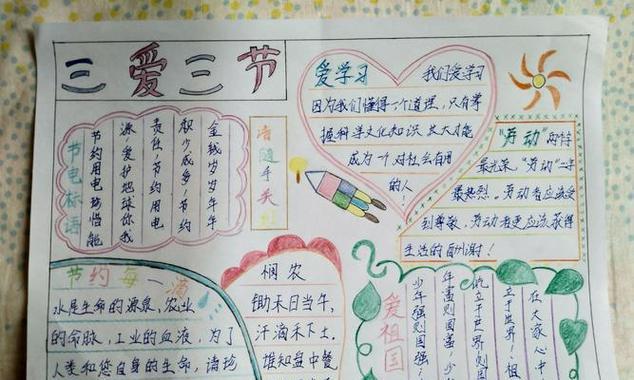 三爱三节
节电标语
节约用电 珍惜能
源 爱护地球 你我
责任, 节约用电
积少成多! 节约
金钱 岁岁年年
请随手关灯
爱学习
我们爱学习
因为我们懂得一个道理, 只有掌
握科学文化知识, 长大才能
成为一个对社会有用
的人!
"劳动"两个字
最光荣。"劳动"二字
最热烈。劳动者应该受
到尊敬, 劳动者更应该获得
生活的酬谢!
节约每一滴
水是生命的源泉, 农业
的命脉, 工业的血液, 为了
人类和您自身的生命, 请珍
悯农
锄禾日当午,
汗滴禾下土.
谁知盘中餐
爱祖国
在大家心中
立于世界! 祖
屹立于世界! 则国
年富则国富! 少
少年强则国强!